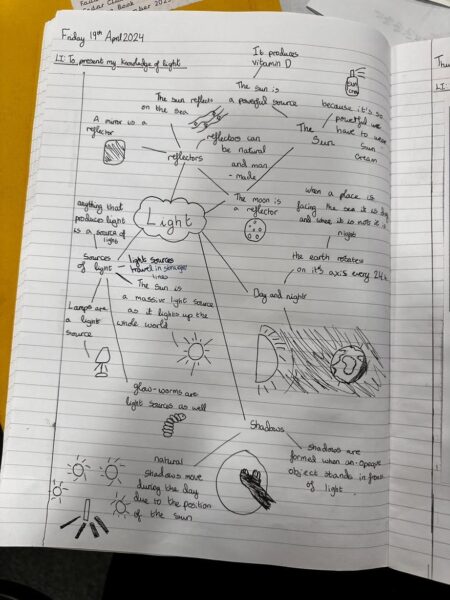 Friday 19th April 2024
LI: To present my knowledge of light
It produces
vitamin D
The sun is
a powerful source
sun
cream
because it's so
powerful we
have to wear
sun
cream
The
Sun
The sun reflects
on the sea
A mirror is a
reflector
reflectors can
be natural
and man
-made
reflectors
The moon is
a reflector
when a place is
facing the sea it is day
and when it is not it is
night
the earth rotates
on its axis every 24h
Day and night
Light
anything that
produces light
is a source of
light
Sources
of light
light sources
travel in
lines
The Sun is
a massive light source
as it lights up the
whole world
Lamps are
a light
source
glow-worms are
light sources as well
Shadows
shadows are
formed when an opaque
object stands in front
of light
natural
shadows move
during the day
due to the position
of the sun
LI: